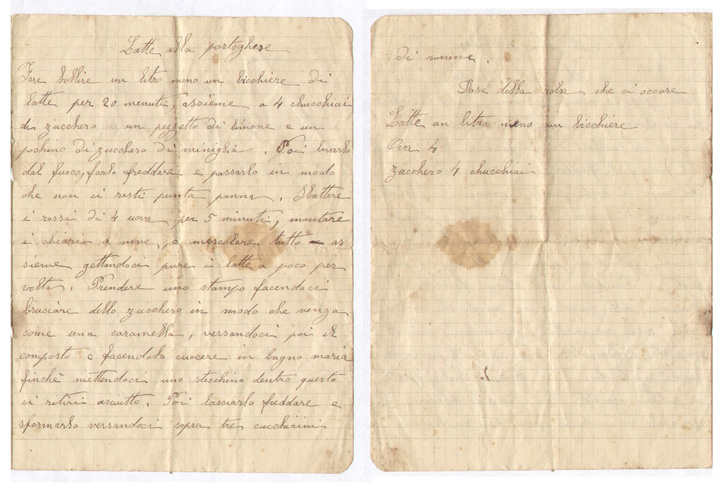 Latte alla portoghese
Fare bollire un litro meno un bicchiere di
latte per 20 minuti, assieme a 4 chucchiai
di zucchero un pezzetto di limone e un
pochino di zucchero di viniglia. Poi levarlo
dal fuoco, farlo freddare e passarlo in modo
che non ci resti punta panna. Sbattere
i rossi di 4 uova per 5 minuti, montare
i chiari a neve, e mescolare tutto as
sieme gettandoci pure il latte a poco per
volta. Prendere uno stampo facendoci
bruciare dello zucchero in modo che venga
come una caramella, versandoci poi il
composto e facendolo cuocere in bagno maria
finchè mettendoci uno stecchino dentro questo
si ritiri asciutto. Poi lasciarlo freddare e
sformarlo versandoci sopra tre cucchiaini
di rumme.
Dose della roba che ci occore
Latte un litro meno un bicchiere
Ova 4
zucchero 4 chucchiai